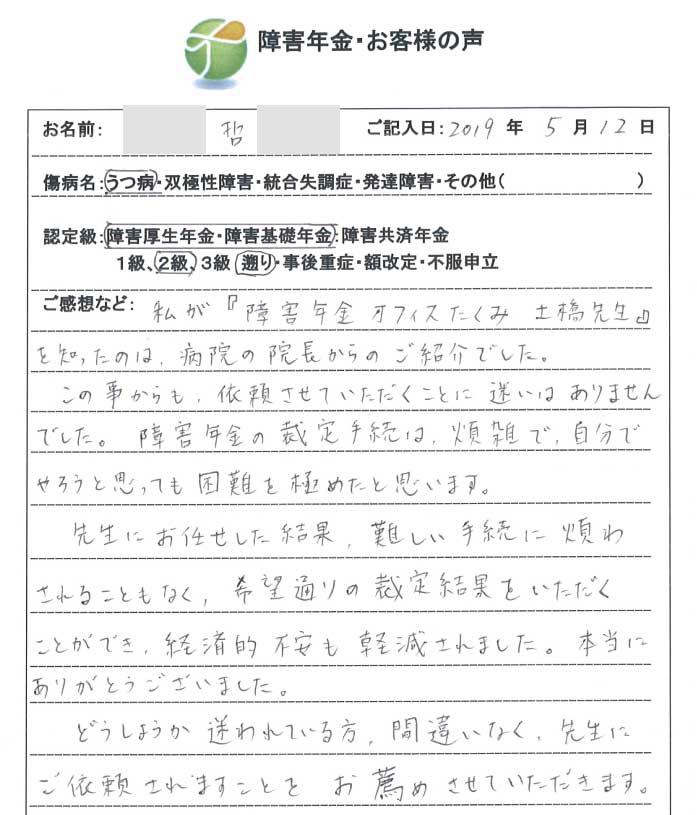 障害年金・お客様の声
お名前: 哲 ご記入日:2019 年 5 月 12 日
傷病名:うつ病・双極性障害・統合失調症・発達障害・その他( )
認定級:障害厚生年金・障害基礎年金:障害共済年金
1級、2級、3級 遡り・事後重症・額改定・不服申立
ご感想など: 私が『障害年金オフィスたくみ 土橋先生』
を知ったのは、病院の院長からのご紹介でした。
この事からも、依頼させていただくことに迷いはありません
でした。 障害年金の裁定手続は、煩雑で、自分で
やろうと思っても困難を極めたと思います。
先生にお任せした結果、難しい手続に煩わ
されることもなく、希望通りの裁定結果をいただく
ことができ、経済的不安も軽減されました。本当に
ありがとうございました。
どうしようか迷われている方、間違いなく、先生に
ご依頼されますことをお薦めさせていただきます。